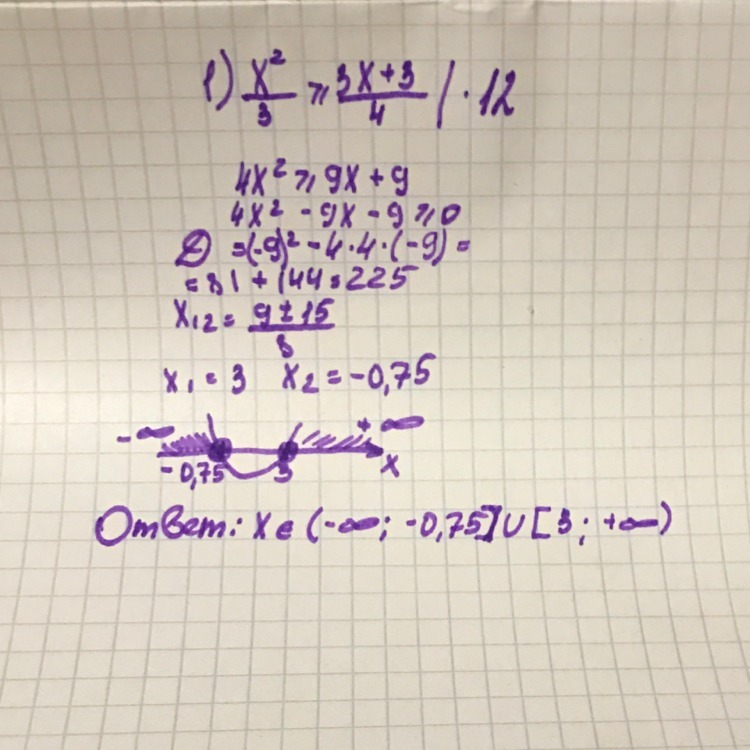 1) x²/3 ≥ 3x+3/4 | · 12
4x² ≥ 9x + 9
4x² - 9x - 9 ≥ 0
D = (-9)² - 4·4·(-9) =
= 81 + 144 = 225
x₁₂ = 9±15/8
x₁ = 3 x₂ = -0,75
-∞ + ∞
-0,75 3 x
Ответ: x ∈ (-∞; -0,75] ∪ [3; +∞)